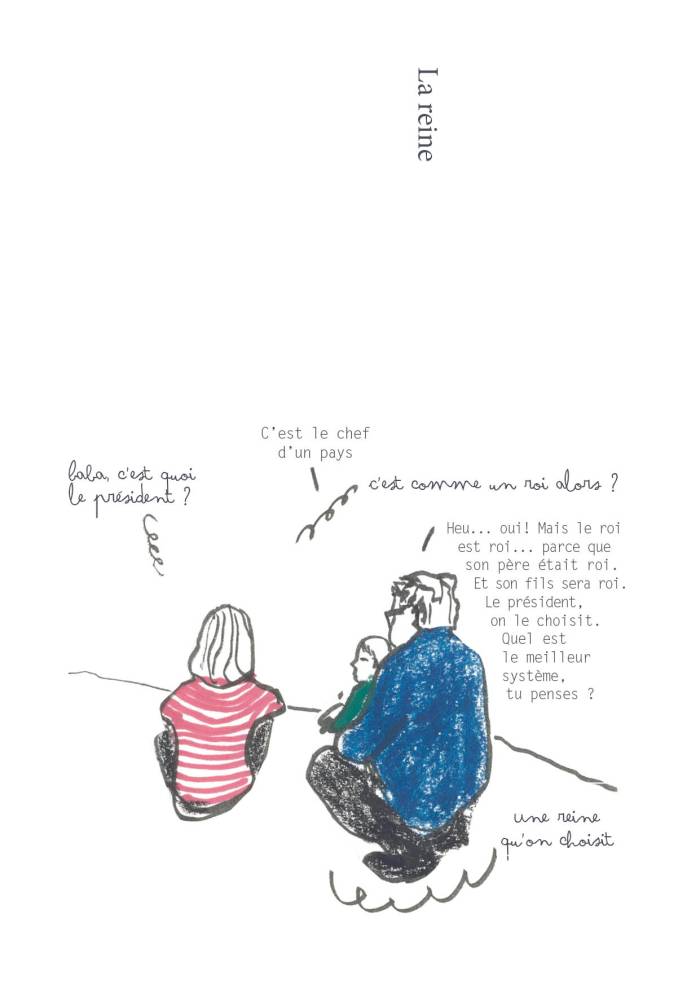 La reine
baba, c'est quoi
le président ?
C'est le chef
d'un pays
c'est comme un roi alors ?
Heu... oui! Mais le roi
est roi... parce que
son père était roi.
Et son fils sera roi.
Le président,
on le choisit.
Quel est
le meilleur
système,
tu penses ?
une reine
qu'on choisit